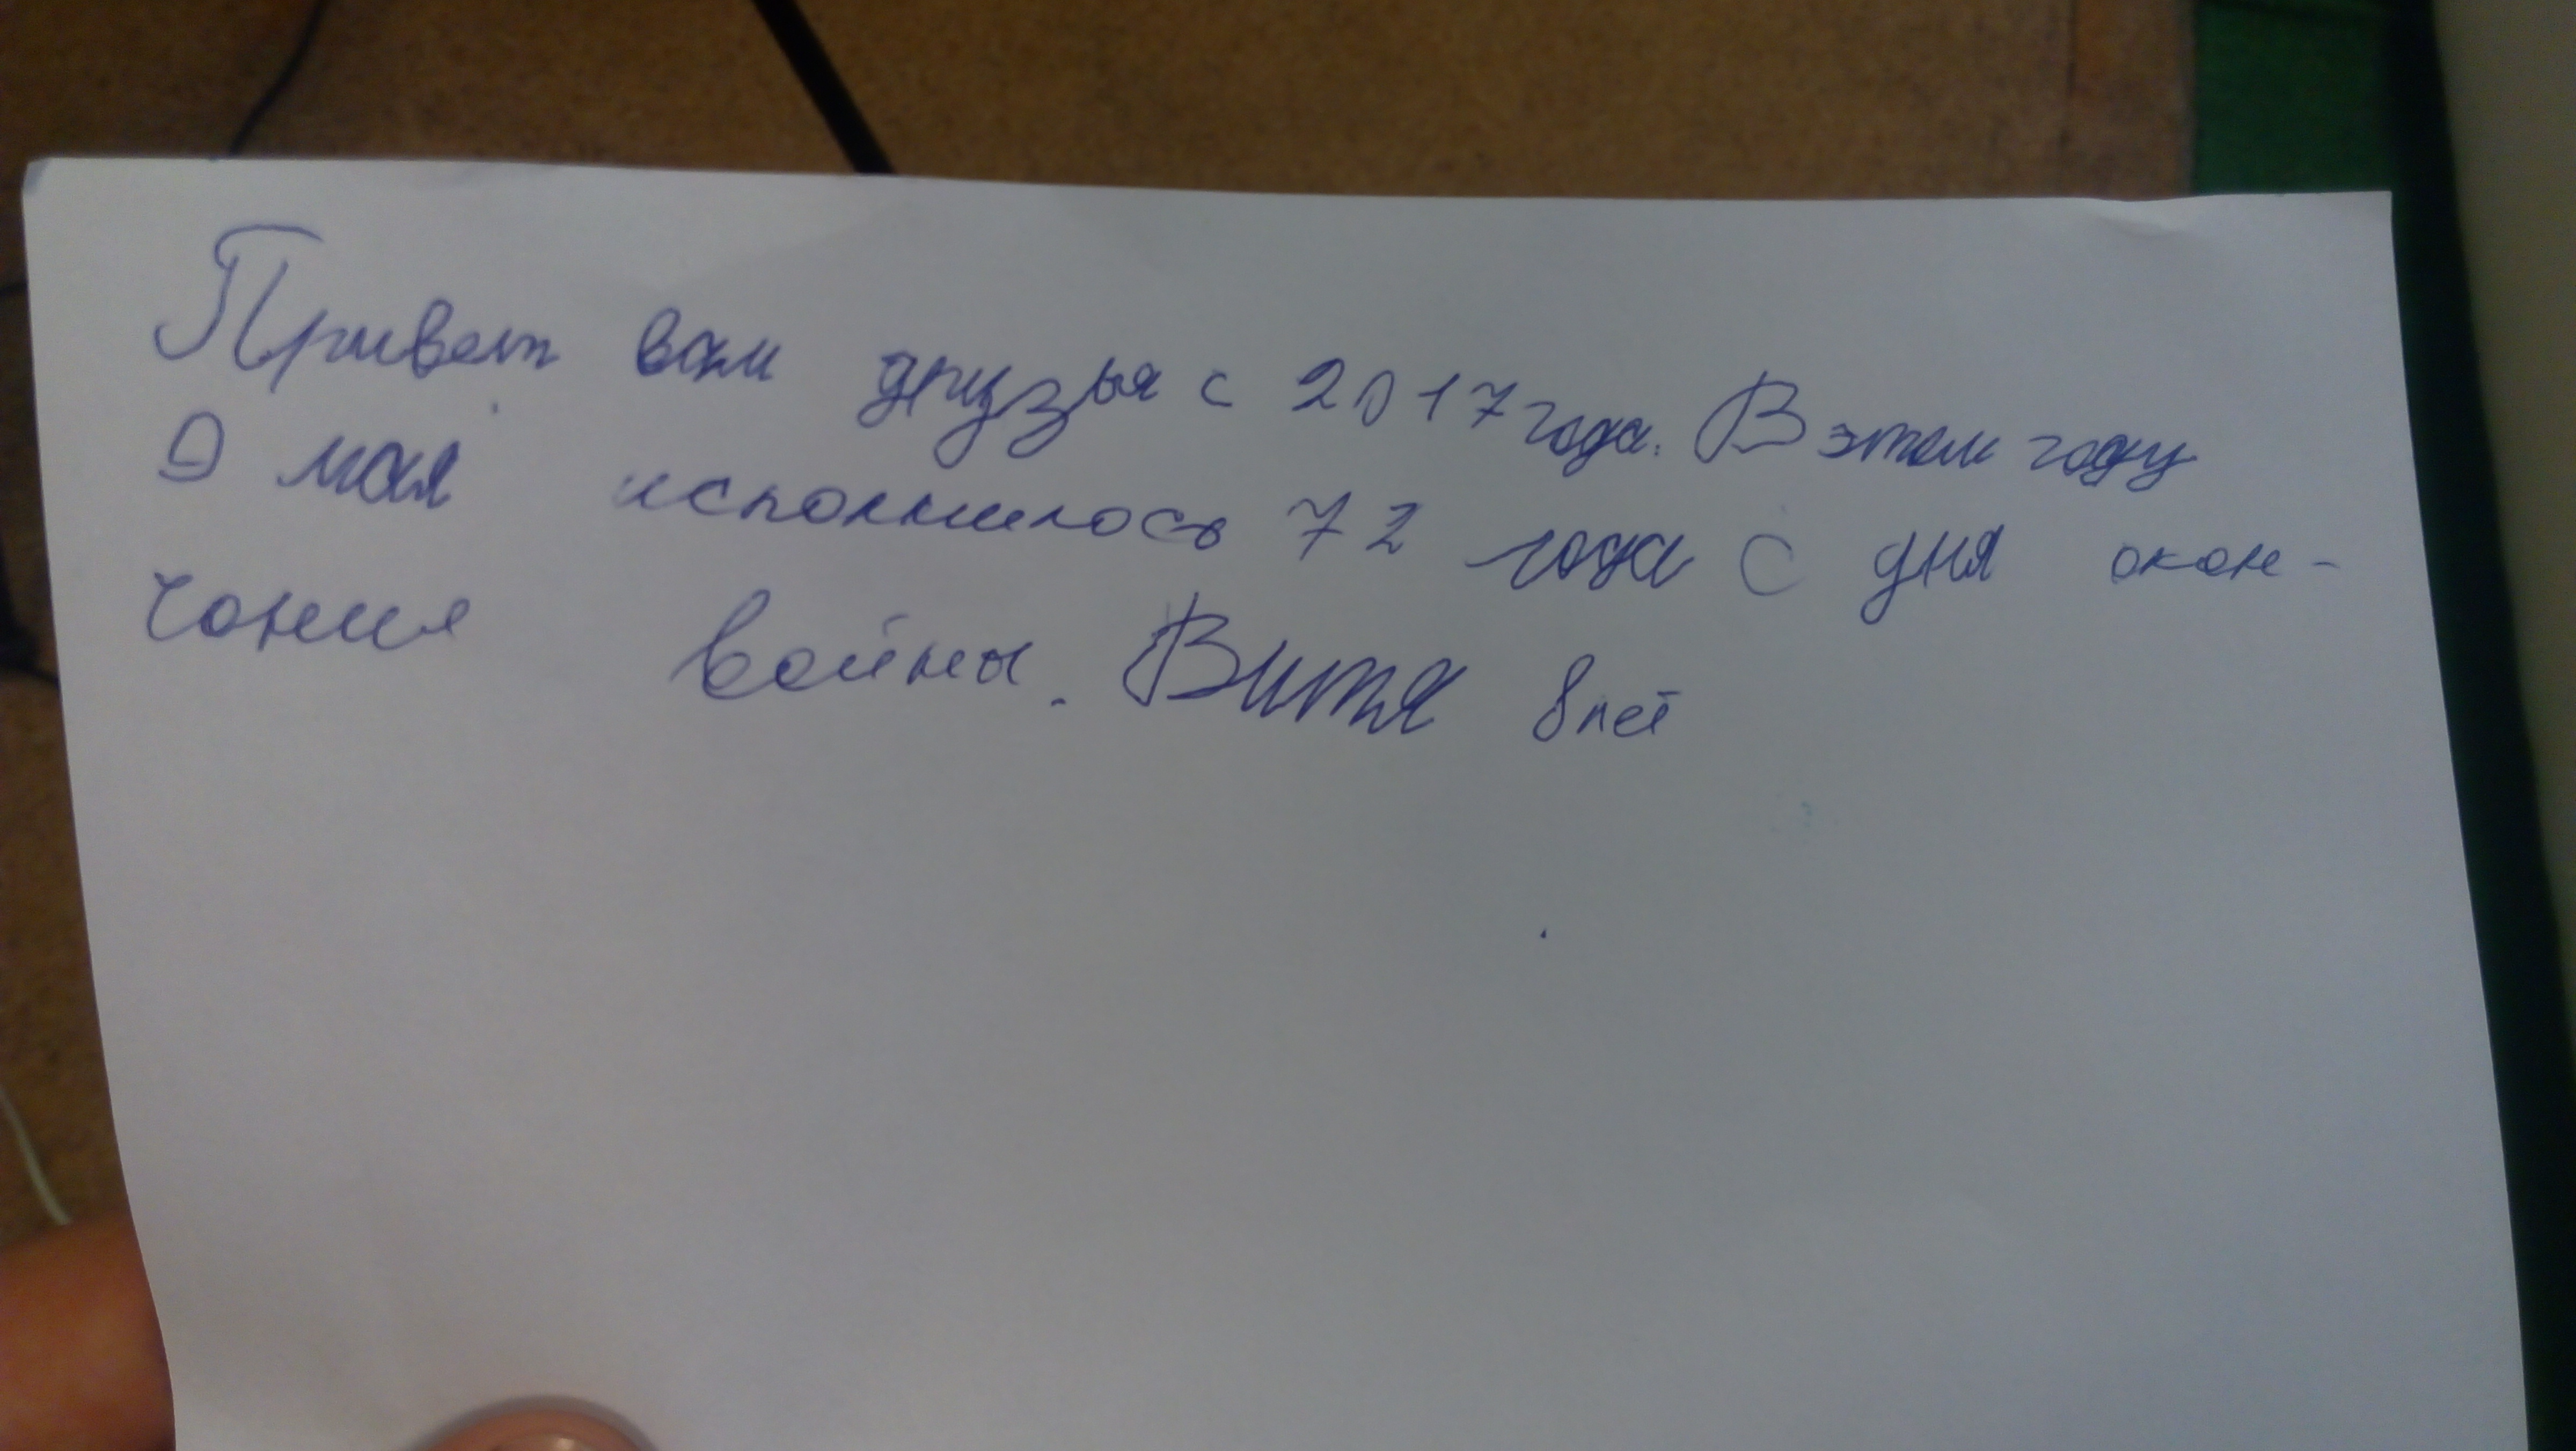 Привет вам друзья с 2017 года. В этом году
9 мая исполнилось 72 года с дня окон-
чания войны. Витя 8 лет